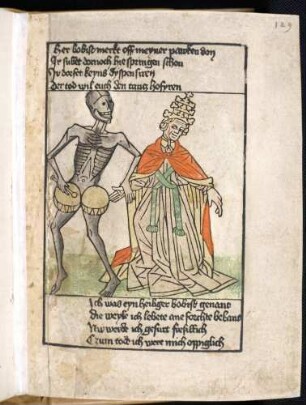 129
Her bobist merke eff meyner pawken don
Ir sullt dornoch hie springen schon
Ir dorfet keyns dyspensiren
der tod wil euch den tantz hofyren
Ich was eyn heiliger bobist genant
die weyle ich lebete ane forchte bekant
Nw werde ich gefurt freslich
Czum tod ich were mich